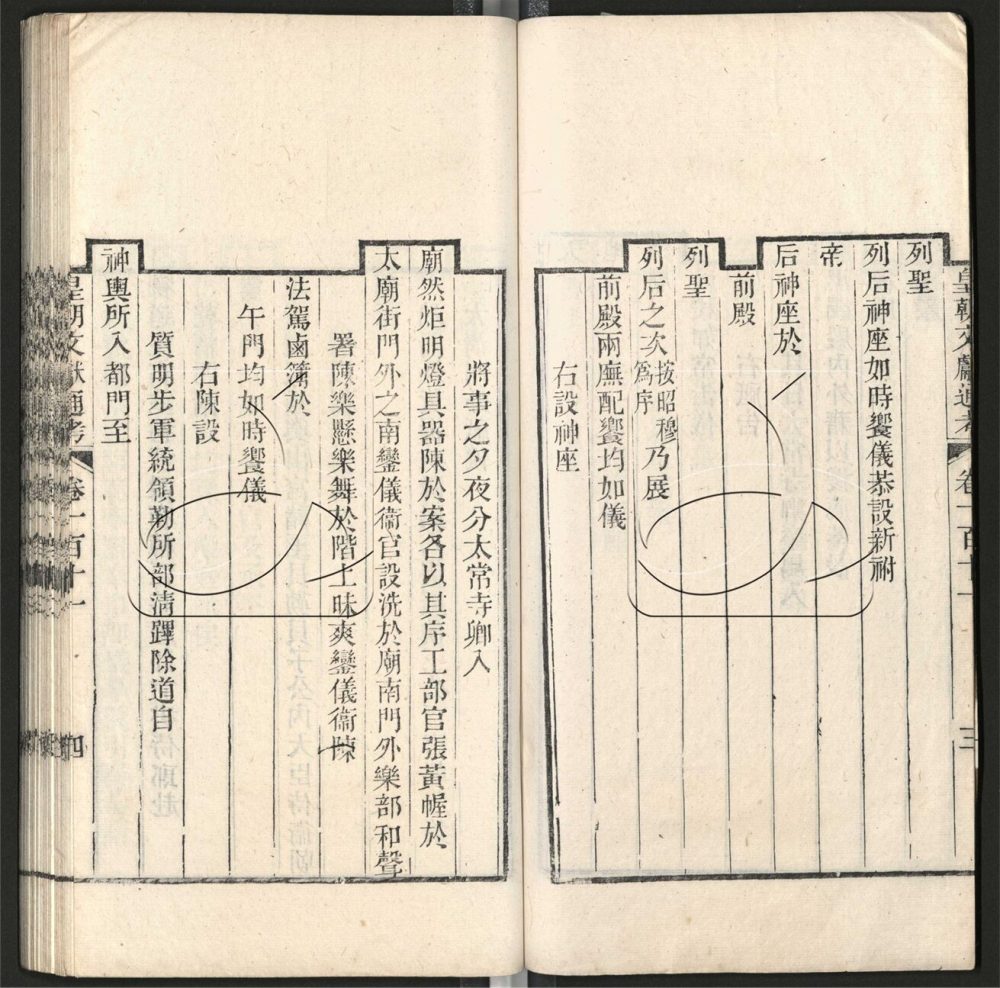 皇朝文獻通考 卷一百十一 三
列聖
列后神座如時饗儀恭設新祔
帝
后神座於
前殿
列聖
列后之次按昭穆爲序乃展
前殿兩廡配饗均如儀
右設神座
將事之夕夜分太常寺卿入
廟然炬明燈具器陳於案各以其序工部官張黃幄於
太廟街門外之南鑾儀衞官設洗於廟南門外樂部和聲
署陳樂懸樂舞於階上昧爽鑾儀衞陳
法駕鹵簿於
午門均如時饗儀
右陳設
質明步軍統領勒所部淸蹕除道自
神輿所入都門至
皇朝文獻通考 卷一百十一 四